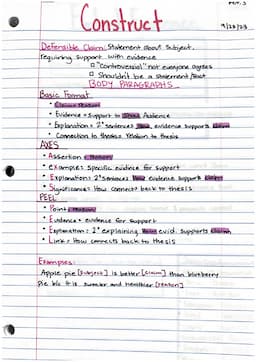 PER. 3
Construct
9/28/23
Defensible Claim: Statement about subject,
requiring support with evidence
"Controversial" not everyone agrees
Shouldn't be a statement/fact
BODY PARAGRAPHS
Basic Format
• Claim + Reason
• Evidence = Support to Audience
• Explanation = 2+ sentences how evidence supports claim
• Connection to thesis = Relation to thesis
AXES
• Assertion = Reason
• eXamples: Specific evidince for support
• Explanation: 2+ sentences how evidence support claim
• Significance: How connect back to thesis
PEEL
• Point = Reason
• Evidence = evidence for support
• Explanation = 2+ explaining how evid. supports claim
• Link = How connects back to thesis
Examples:
Apple pie [subject] is better [claim] than blueberry
pie b/c it is sweeter and healthier [reason]